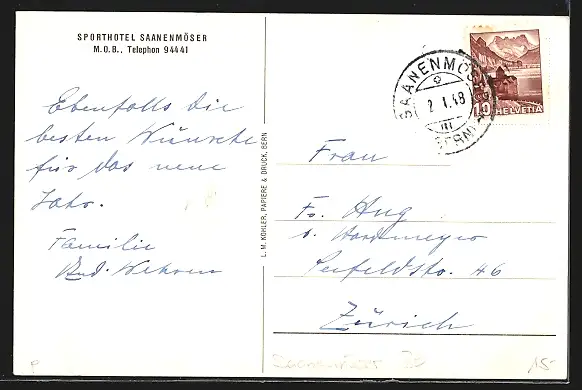 SPORTHOTEL SAANENMÖSER
M.O.B., Telephon 94441
Ebenfalls die
besten Wünsche
für das neue
Jahr.
Familie
L. M. KOHLER, PAPIERE & DRUCK, BERN
SAANENMÖSER
2. I. 48
(BERN)
10 HELVETIA
Frau
Fr. Hug
Seefeldstr. 46
Zürich
15-